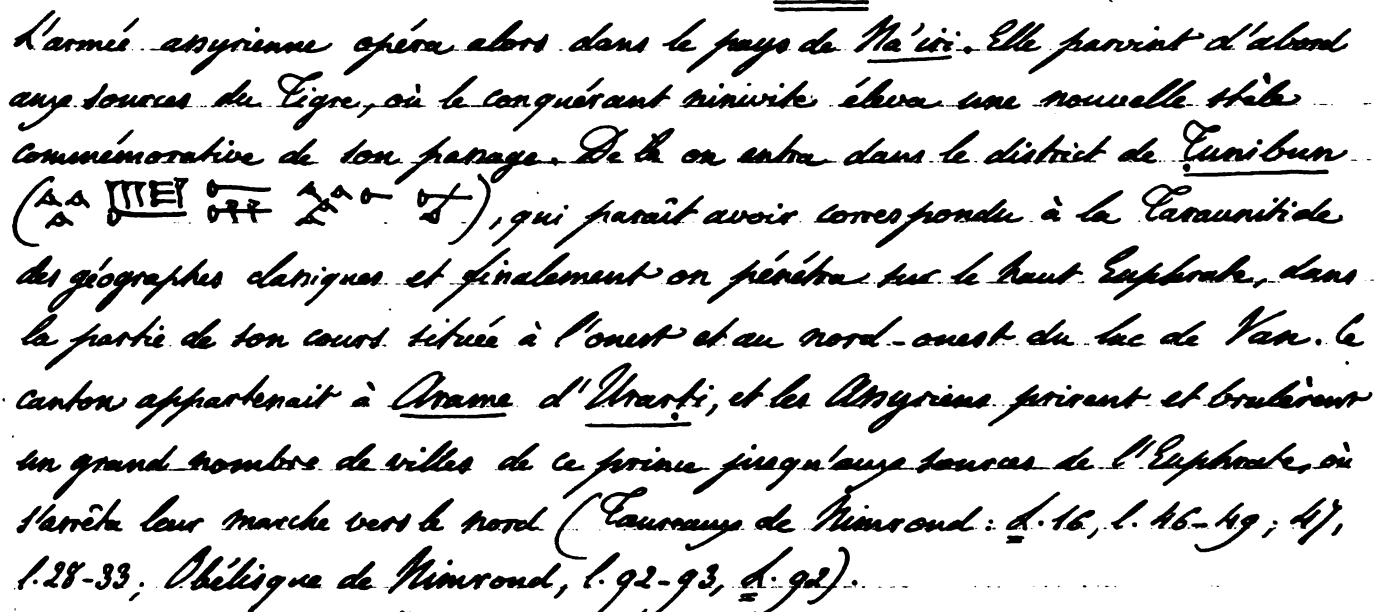 L'armée assyrienne opéra alors dans le pays de Na'iri. Elle parvint d'abord
aux sources du Tigre, où le conquérant ninivite éleva une nouvelle stèle
commémorative de son passage. De là on entra dans le district de Ṭunibun
( ), qui paraît avoir correspondu à la Taraunitide
des géographes classiques et finalement on pénétra sur le haut Euphrate, dans
la partie de son cours située à l'ouest et au nord-ouest du lac de Van. Ce
canton appartenait à Arame d'Urarṭi, et les Assyriens prirent et brulèrent
un grand nombre de villes de ce prince jusqu'aux sources de l'Euphrate, où
s'arrêta leur marche vers le nord (Taureaux de Nimroud : L. 16, l. 46-49 ; 47,
l. 28-33 ; Obélisque de Nimroud, l. 92-93, L. 92).